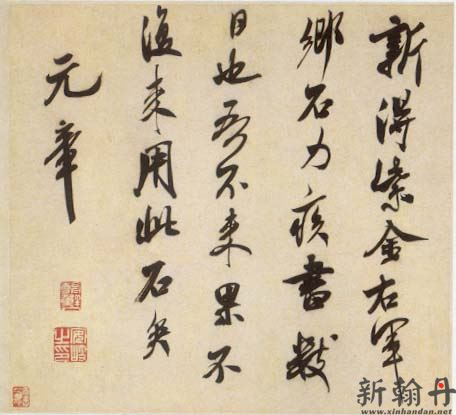 新得紫金右軍
鄉石力疾書數
日也吾不来果不
復来用此石矣
元章
新翰丹
www.xinhandan.net